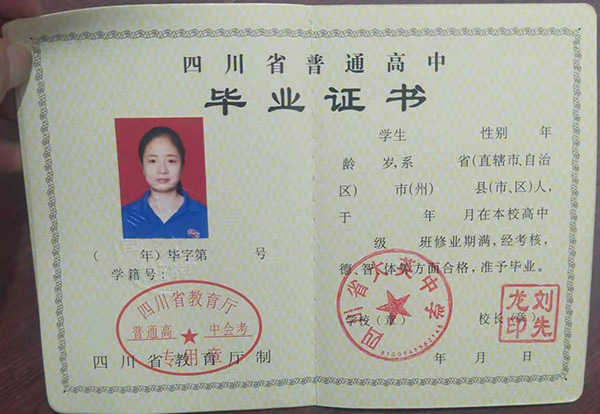 四川省普通高中
毕业证书
学生 性别 年
龄 岁,系 省(直辖市、自治
区) 市(州) 县(市、区)人,
于 年 月在本校高中
级 班修业期满,经考核,
德、智、体等方面合格,准予毕业。
学校(章) 校长(章)
年 月 日
( 年)毕字第 号
学籍号:
四川省教育厅
普通高 中会考
专用章
四川省教育厅制
四川省大英中学
刘先
龙印